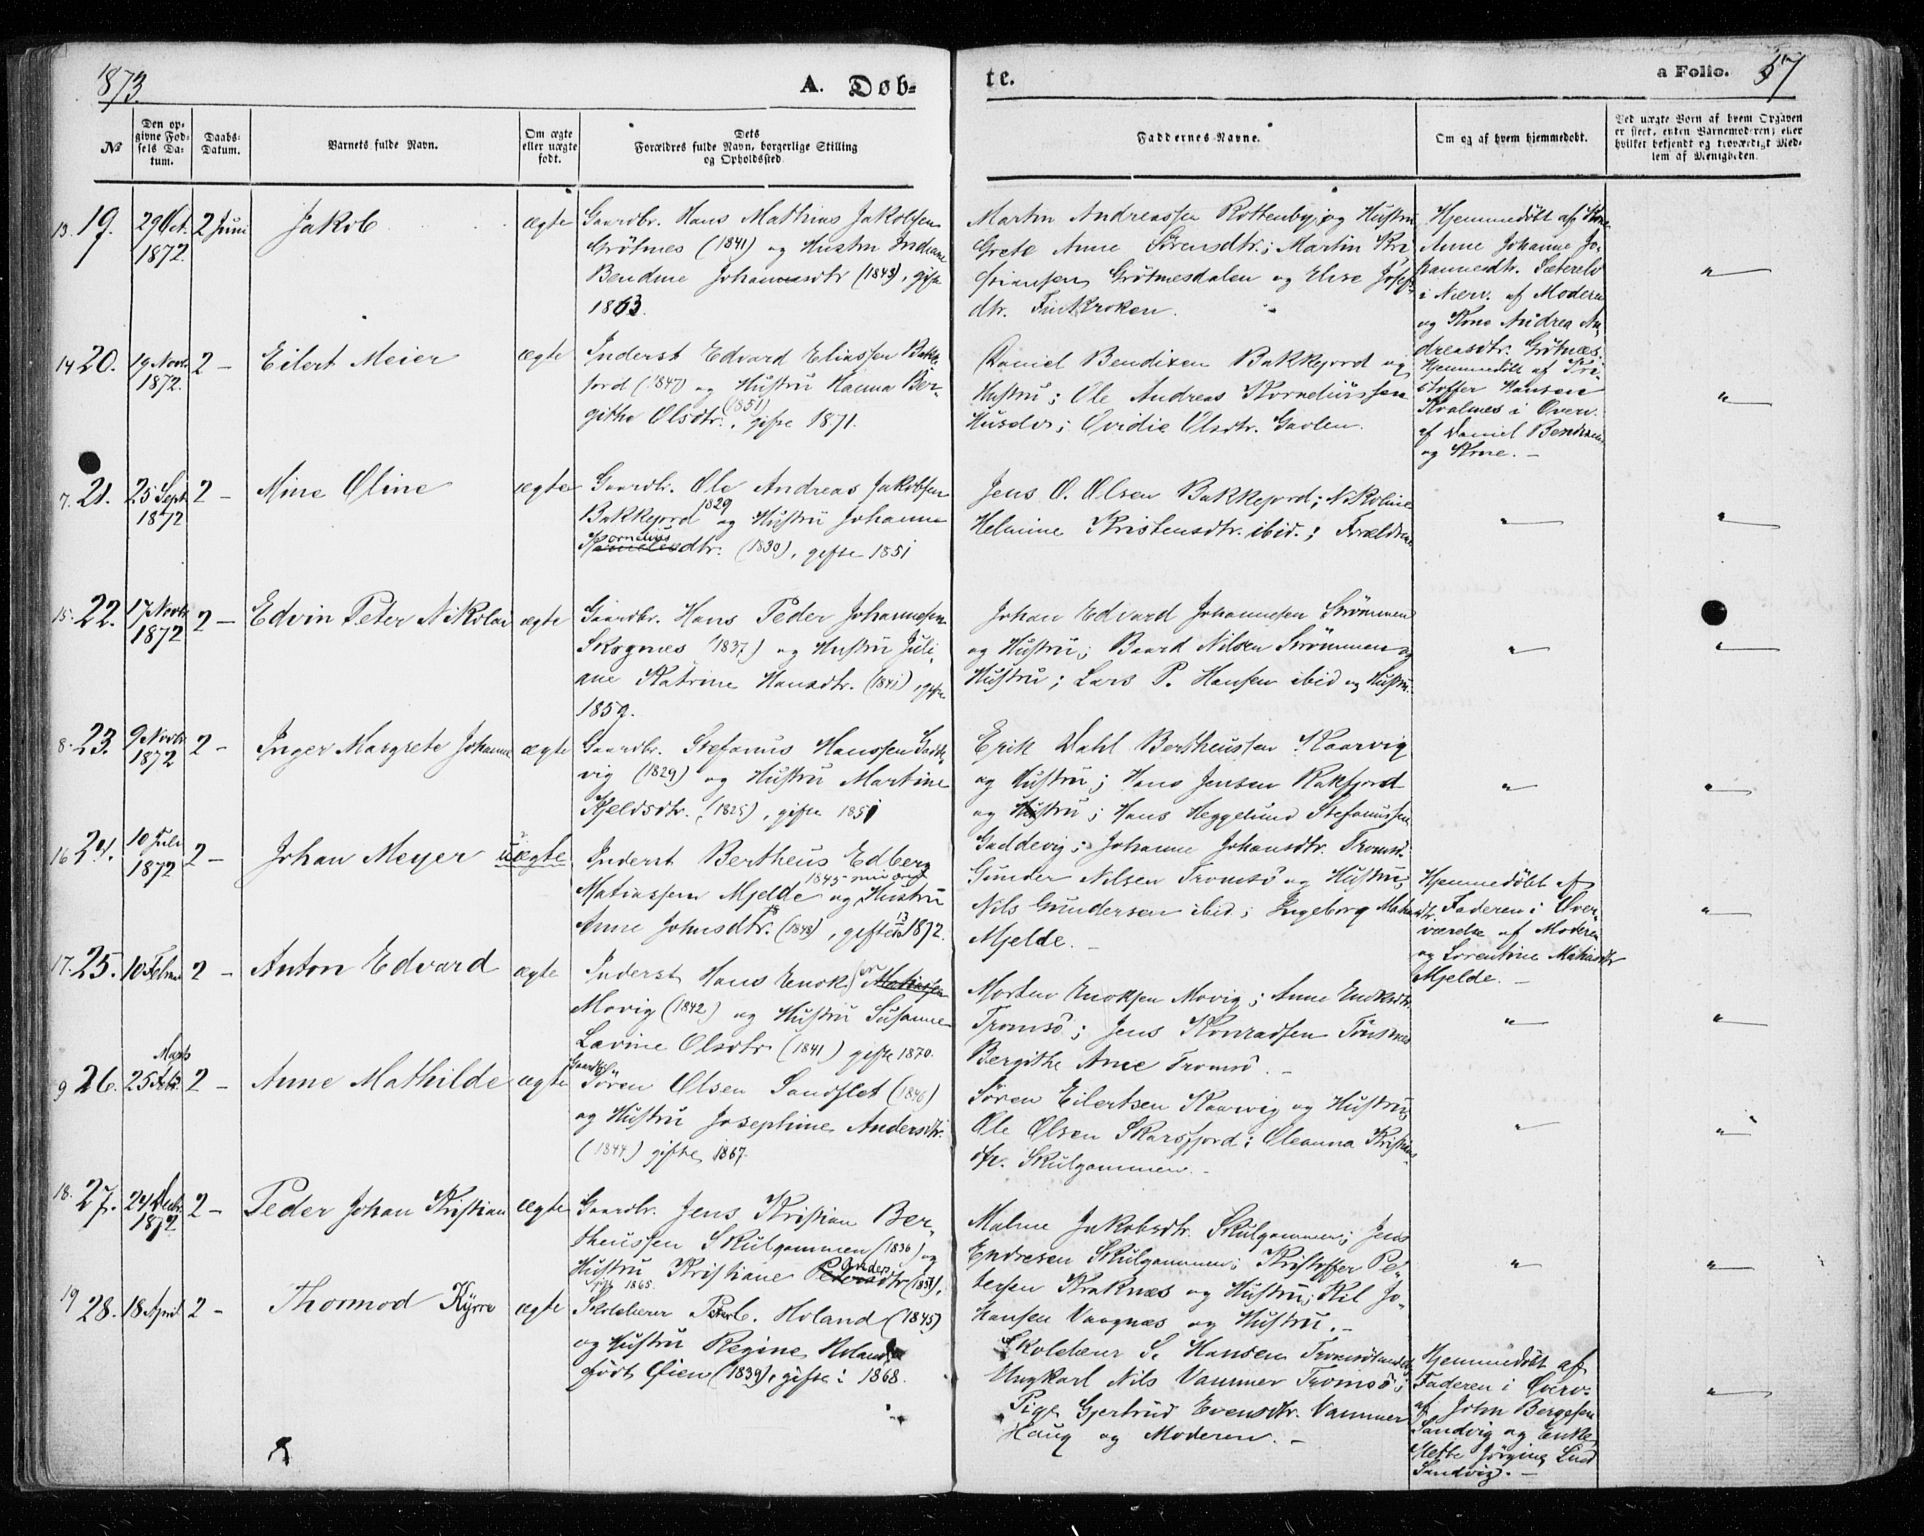 1873.
A. Døb-
te.
a Folio. 57
No
Den op-
givne Fød-
sels Da-
tum.
Daabs-
Datum.
Barnets fulde Navn.
Om ægte
eller uægte
født.
Dets
Forældres fulde Navn, borgerlige Stilling
og Opholdssted.
Faddernes Navne.
Om og af hvem hjemmedøbt.
Ved uægte Børn af hvem Opgaven
er skeet, enten Barnemoderen, eller
hvilket bekjendt og troværdigt Med-
lem af Menigheden.
13 19. 29 Oct. 1872. 2 Juni Jakob ægte
Gaardbr. Hans Mathias Jakobsen
Grøtnes (1841) og Hustru Indiane
Bendine Johannesdtr (1843), gifte
1863.
Martin Andreassen Rottenby og Hustru
Grete Anne Sørensdtr.; Martin Kri-
stiansen Grøtnesdalen og Elise Josefs-
dtr. Finkroken.
Hjemmedøbt af Kone
Anne Johanne Jo-
hannesdtr. Sæterelv
i Nærv. af Moderen
og Kone Andrea An-
dreasdtr. Grøtnæs.
"
14 20. 19 Novb. 1872. 2 - Eilert Meier ægte
Inderst Edvard Eliassen Bakke-
jord (1847) og Hustru Hanna Ber-
githe Olsdtr. (1851), gifte 1871.
Daniel Bendixen Bakkejord og
Hustru; Ole Andreas Korneliussen
Huselv; Ovidie Olsdtr. Gavlen.
Hjemmedøbt af Kri-
stoffer Hansen
Kvalnes i Overv.
af Daniel Bendixen
og Kone. -
"
7. 21. 25 Sept. 1872 2 - Mine Oline ægte
Gaardbr. Ole Andreas Jakobsen
Bakkejord 1829 og Hustru Johanna
Korneliusdtr. (1830), gifte 1851
Jens O. Olsen Bakkejord; Nikoline
Helmine Kristensdtr. ibid.; Forældrene
"
"
15. 22. 17 Novbr 1872 2 - Edvin Peter Nikolai ægte
Gaardbr. Hans Peder Johannesen
Skognes (1837) og Hustru Juli-
ane Katrine Hansdtr. (1841), gifte
1859.
Johan Edvard Johannesen Strømmen
og Hustru; Baard Nilsen Strømmen og
Hustru; Lars P. Hansen ibid og Hustru.
"
"
8. 23. 9 Novbr 1872 2 - Inger Margrete Johanne ægte
Gaardbr. Stefanus Hanssen Gadde-
vig (1829) og Hustru Martine
Kjeldsdtr. (1825), gifte 1851
Erik Dahl Bertheussen Kaarvig
og Hustru; Hans Jensen Rakfjord
og Hustru; Hans Heggelund Stefanussen
Gaddevig; Johanne Johansdtr. Tromsø.
"
"
16 24. 10 Juli 1872 2 - Johan Meyer uægte
Inderst Bertheus Edberg
Matiassen Mjelde 1845 og Hustru
Anne Johnsdtr. (1848), gifte 1872.
Gunder Nilsen Tromsø og Hustru;
Nils Gundersen ibid; Ingeborg Mathisdtr.
Mjelde. -
Hjemmedøbt af
Faderen i Over-
værelse af Moderen
og Lorentine Mathisdtr
Mjelde. -
"
17. 25. 10 Febru 2 - Anton Edvard ægte
Inderst Hans Enok
Movig (1842) og Hustru Susanne
Lavine Olsdtr (1841) gifte 1870.
Morten Enoksen Movig; Anne Enoksdtr.
Tromsø; Jens Konradsen Tønsnes
Bergithe Arne Tromsø. -
"
"
9 26. 25 Marts 2 - Anne Mathilde ægte
Gaardbr. Søren Olsen Sandslet (1846)
og Hustru Josephine Andersdtr.
(1844) gifte 1867.
Søren Eilertsen Kaarvig og Hustru,
Ole Olsen Skarsfjord; Oleanna Kristians-
dtr. Skulgammen. -
"
"
18. 27. 24 Decbr. 1872 2 - Peder Johan Kristian ægte
Gaardbr. Jens Kristian Ber-
theussen Skulgammen (1836) og
Hustru Kristiane Andersdtr (1851),
gift 1865.
Malene Jakobsdtr. Skulgammen; Jens
Endresen Skulgammen; Kristoffer Pe-
tersen Kraknæs og Hustru; Kil Jo-
hansen Vaagnæs og Hustru. -
"
"
19 28. 18 April 2 - Thormod Kyrre ægte
Peter C. Hvland (1845)
og Hustru Regine Hvland
født Øien (1839), gifte: 1868.
Skolelærer S. Hansen Tromsøsundet
Ungkarl Nils Vammer Tromsø;
Pige Gjertrud Evensdtr. Vammer
Haug og Moderen. -
Hjemmedøbt af
Faderen i Overv.
af John Bergesen
Sandvig og Enke
Mette Jørgine Lind
Sandvig. -
"